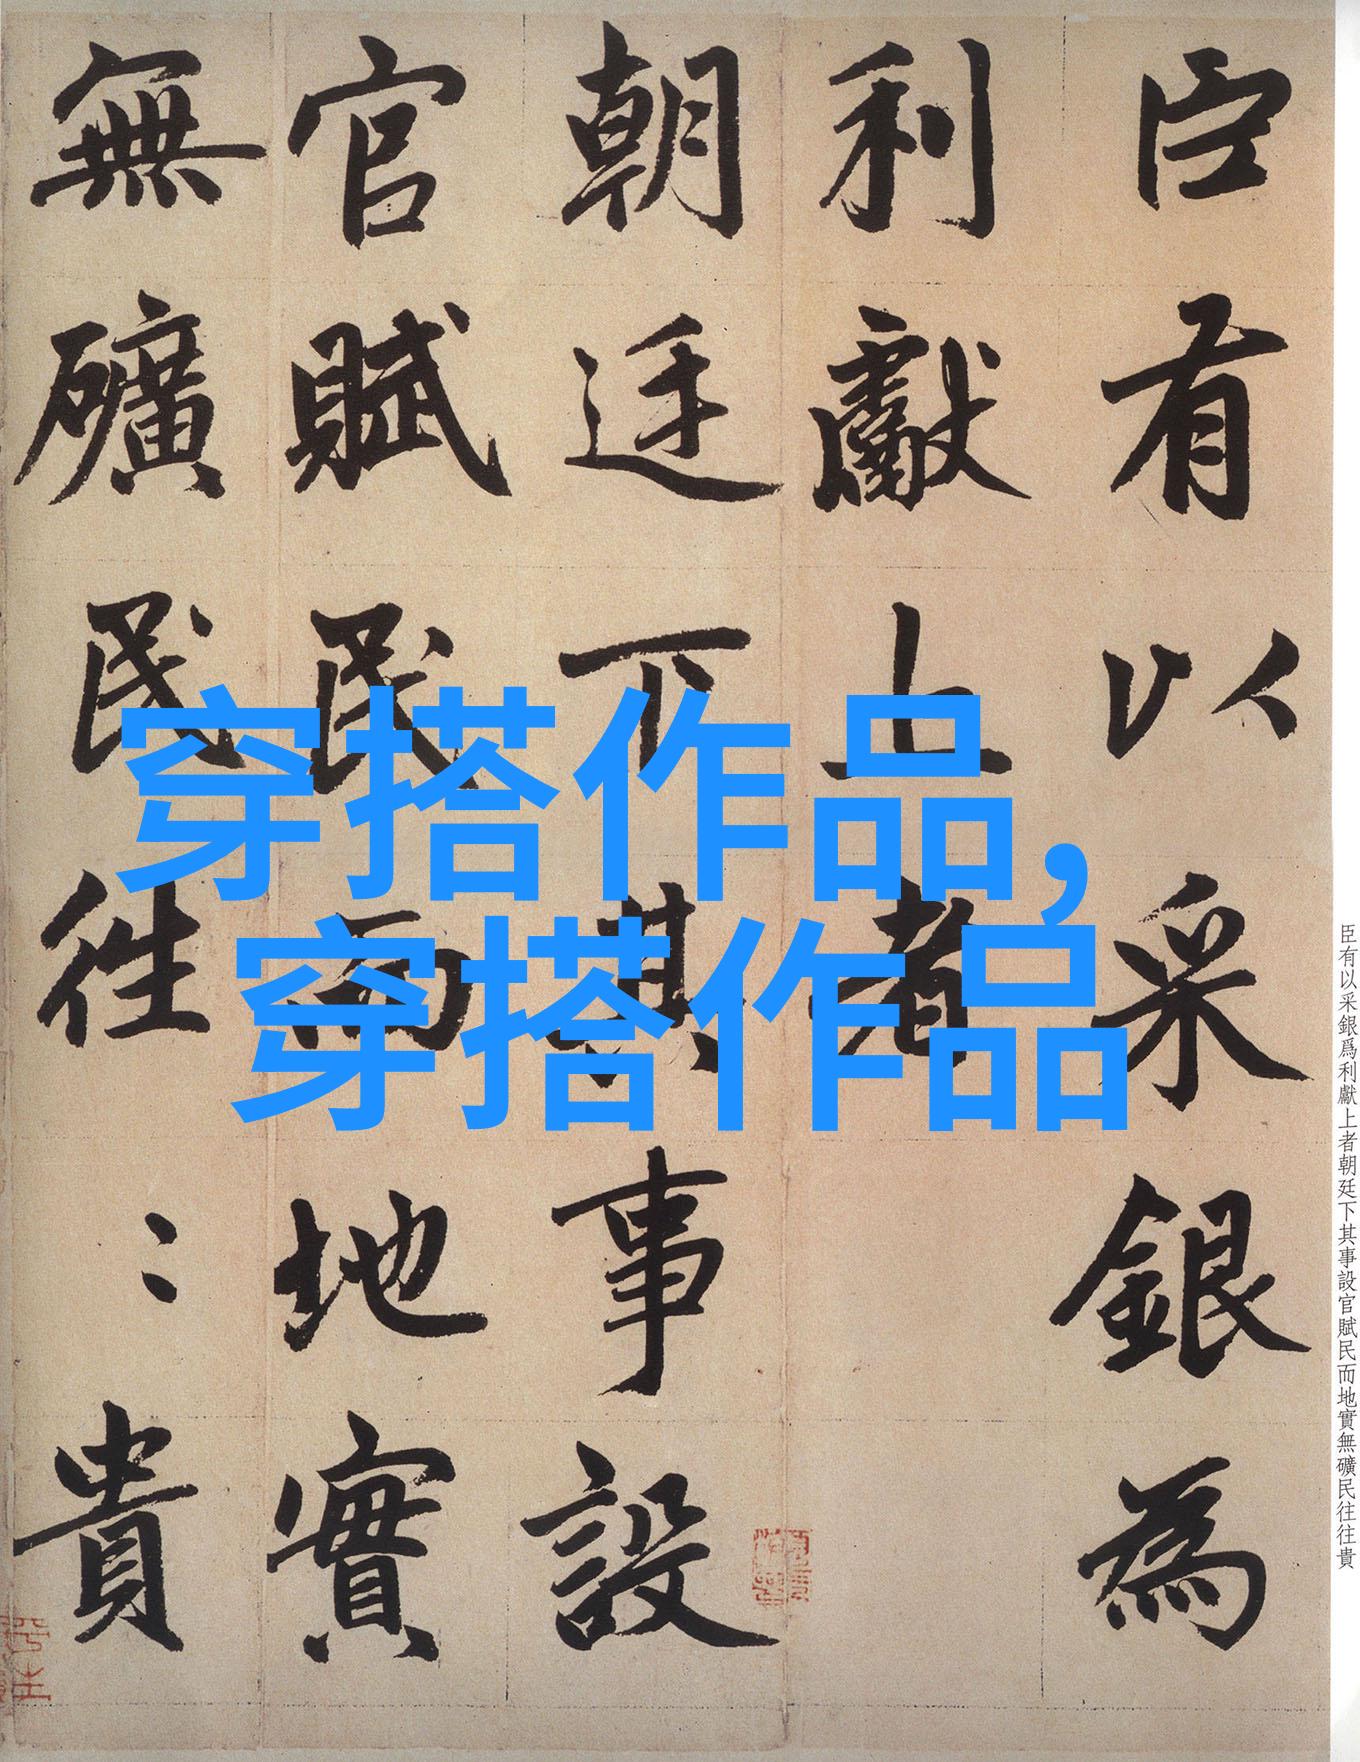 臣有以采銀為
利獻上者
朝廷下其事設
官賦民而地實
無礦民往〻貴
穿搭作品，
穿搭作品
臣有以采銀爲利獻上者朝廷下其事設官賦民而地實無礦民往往貴